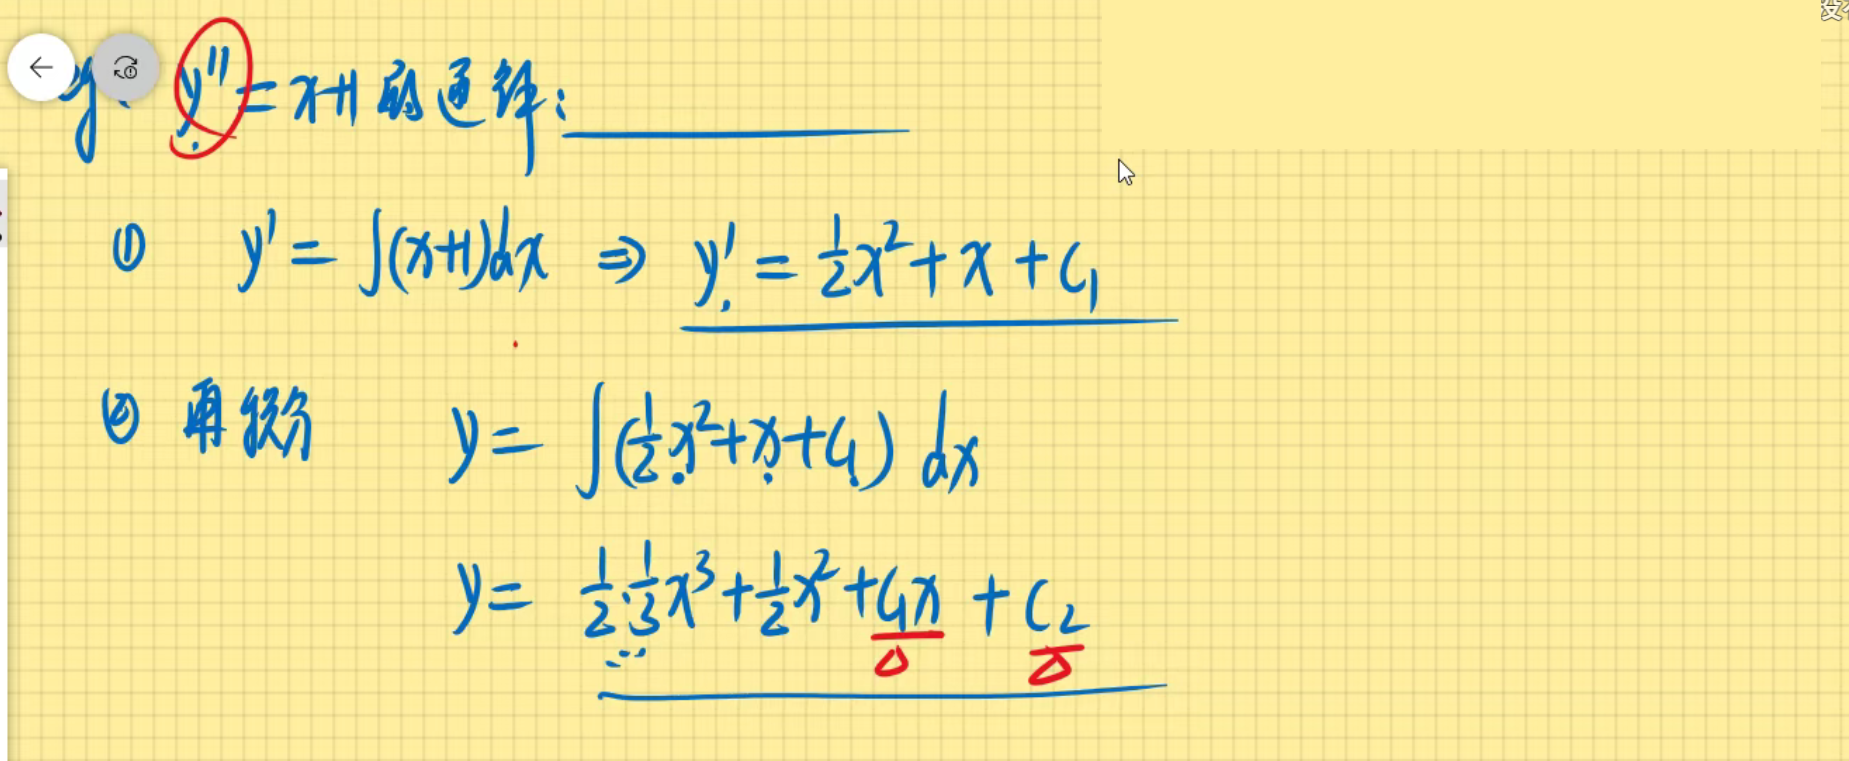 y'' = x+1 的通解:
① y' = ∫(x+1)dx ⇒ y' = 1/2 x² + x + C₁
② 再积分 y = ∫(1/2 x² + x + C₁) dx
y = 1/2 · 1/3 x³ + 1/2 x² + C₁x + C₂